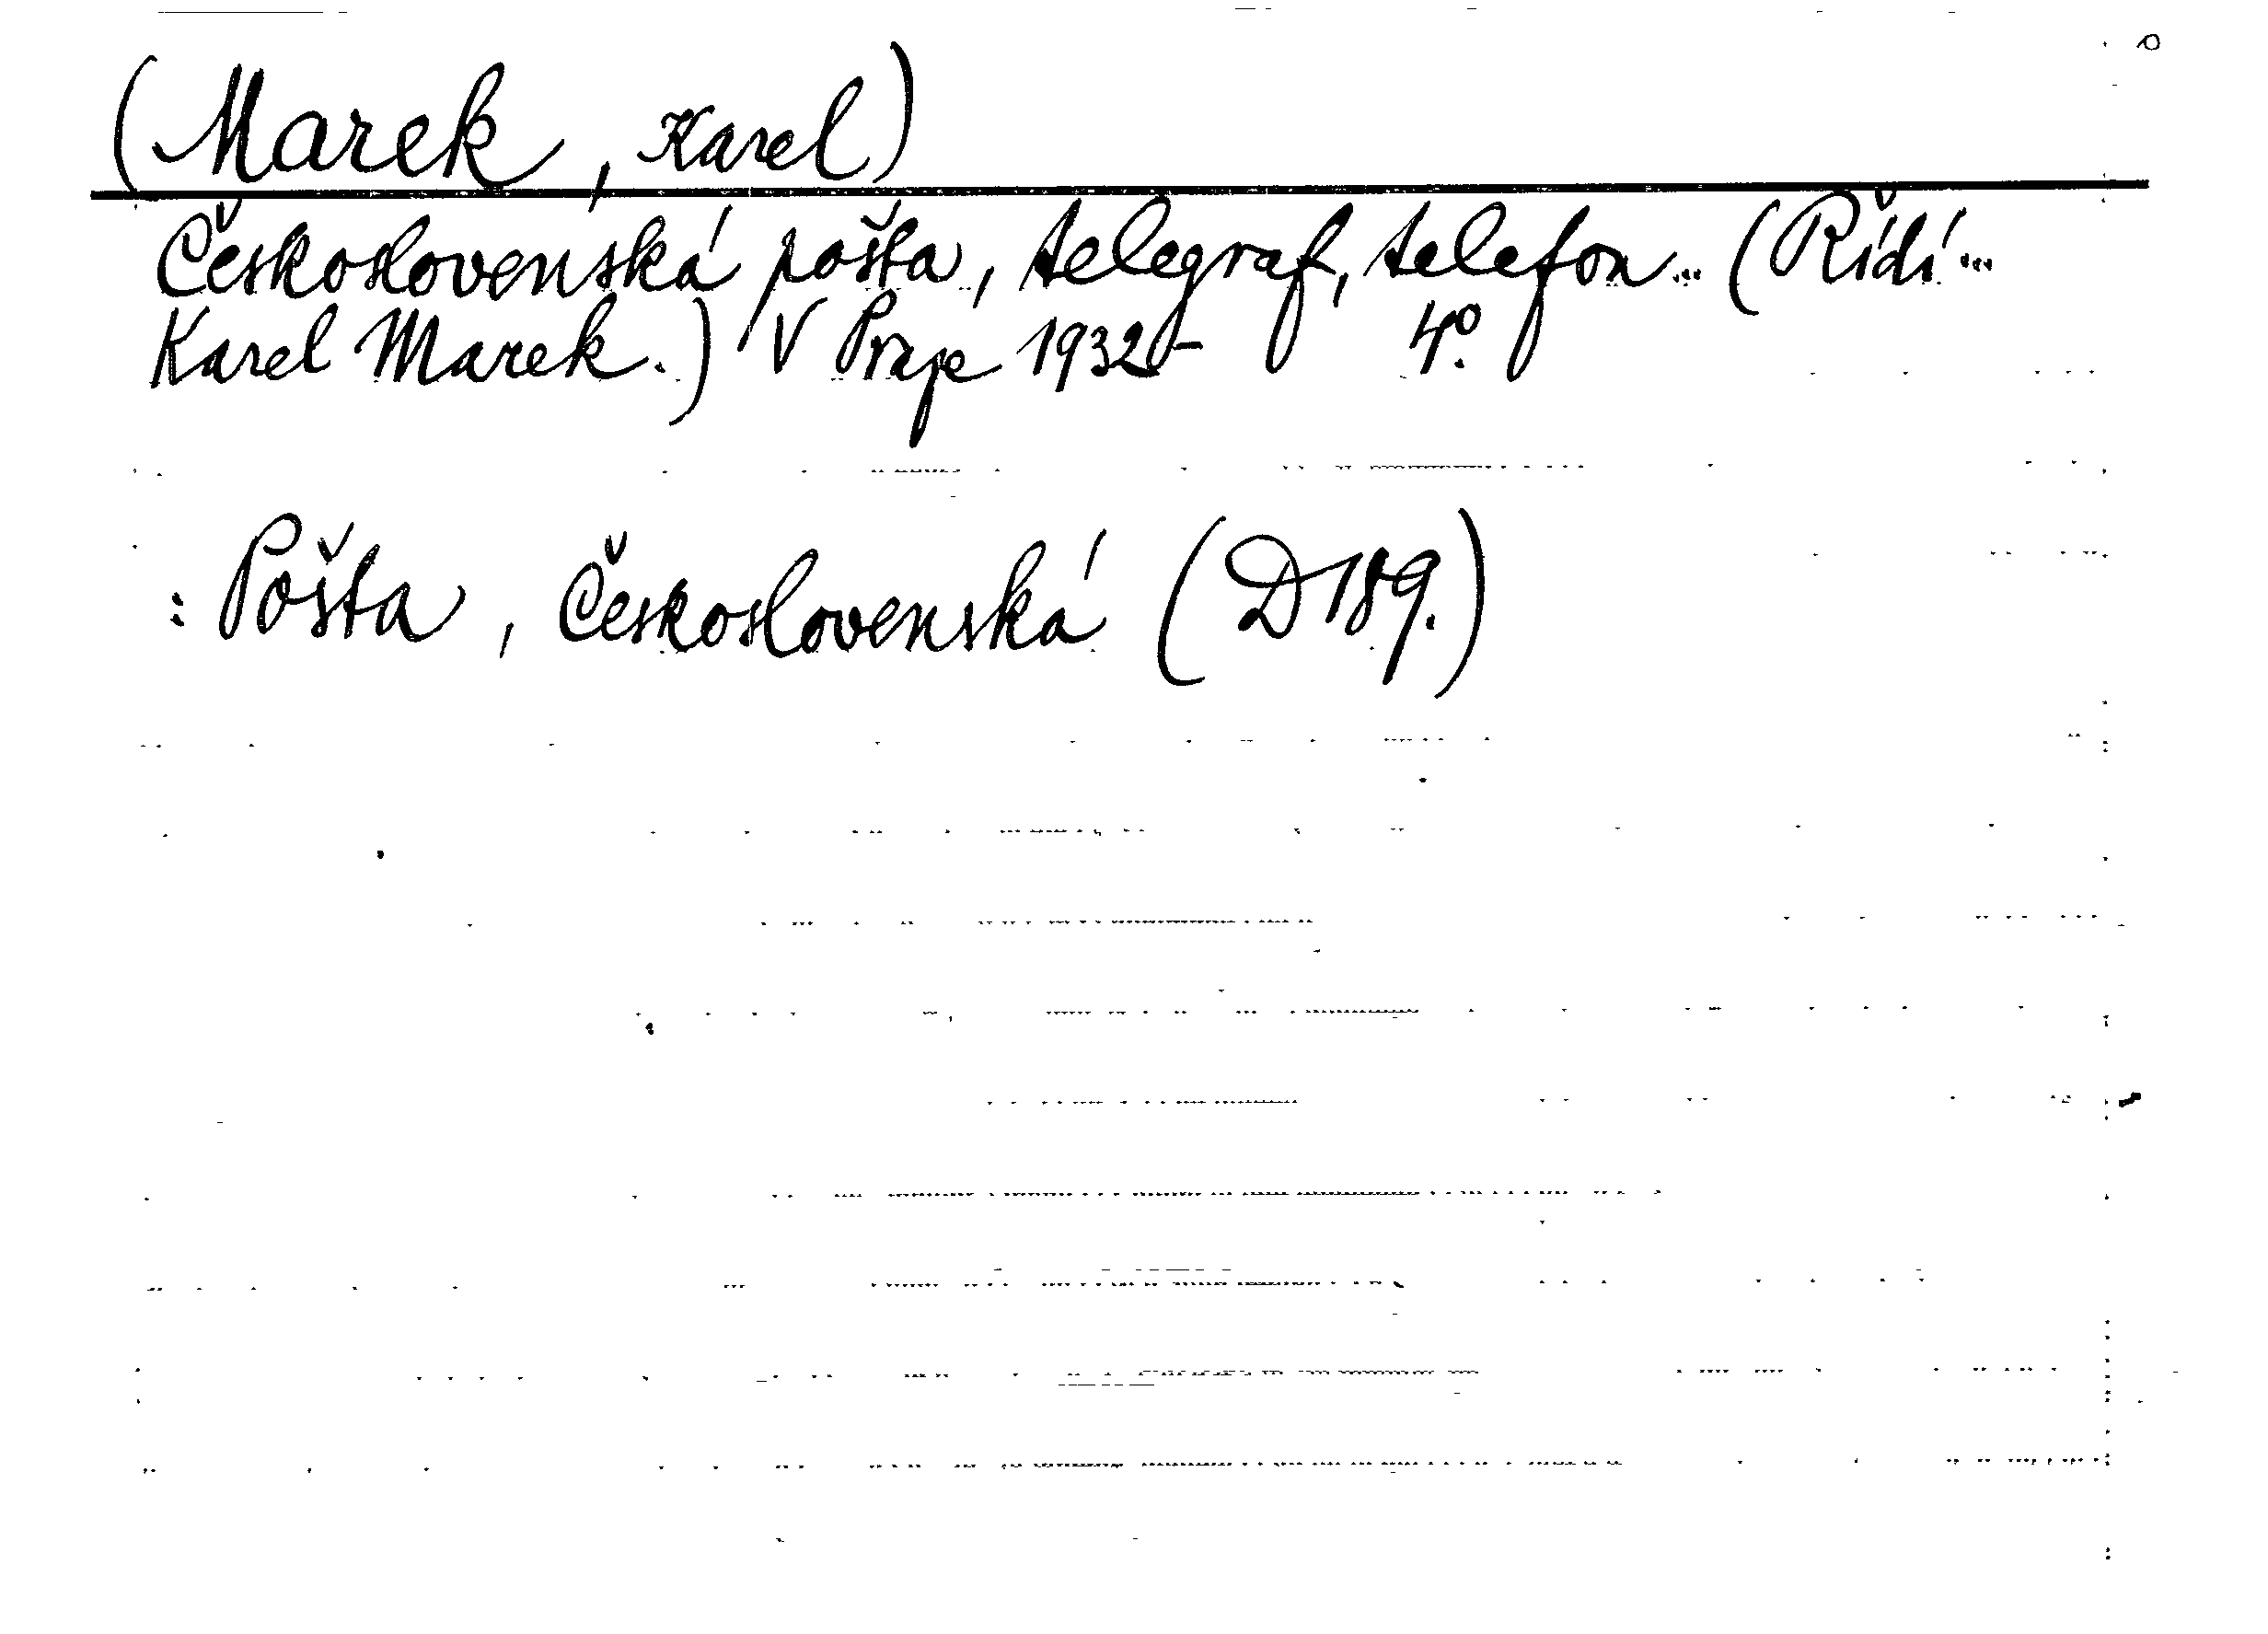 (Marek, Karel)
Československá pošta, telegraf, telefon... (Řídí...
Karel Marek.) V Praze 1932- 4°.
: Pošta, Československá (D189.)